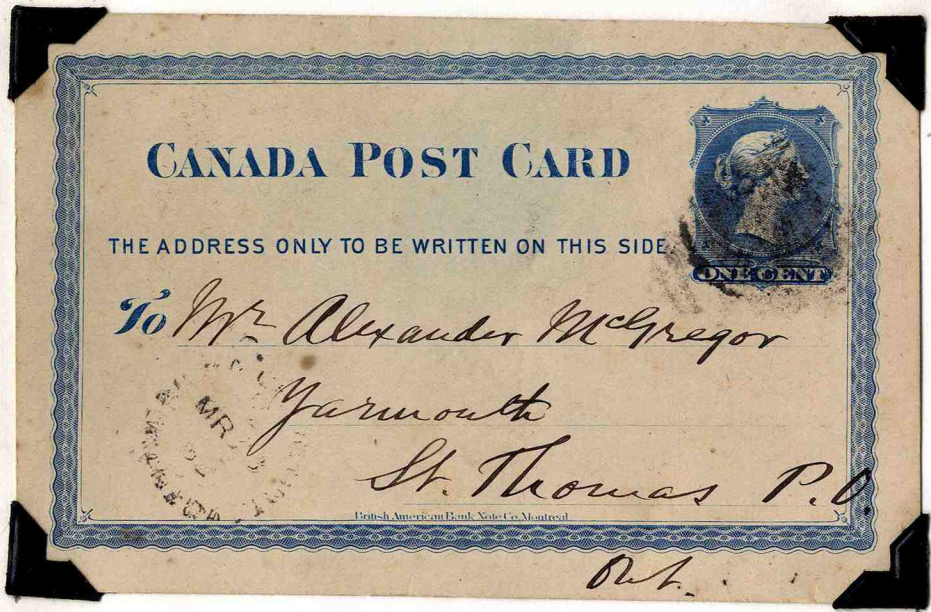 CANADA POST CARD
THE ADDRESS ONLY TO BE WRITTEN ON THIS SIDE
ONE CENT
To Mr. Alexander McGregor
Yarmouth
MR
St. Thomas P.O.
British American Bank Note Co. Montreal
Ont.